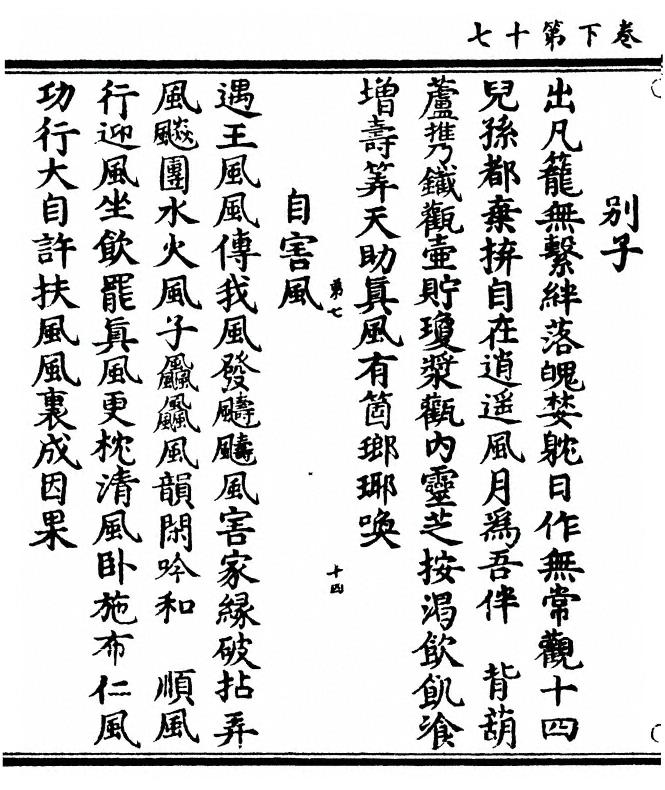 卷下第十七
別子
出凡籠無繫絆落魄婪耽日作無常觀十四
兒孫都棄捹自在逍遥風月爲吾伴　背葫
蘆攜鐵觀壺貯瓊漿觀内靈芝按渴飲飢飡
增壽筭天助眞風有箇瑯琊喚
自害風
遇王風風傳我風發䬞䬞風害家緣破拈弄
風飈團水火風子𩙡𩙡風韻閑吟和　順風
行迎風坐飲罷眞風更枕清風卧施布仁風
功行大自許扶風風裏成因果
第七
十四